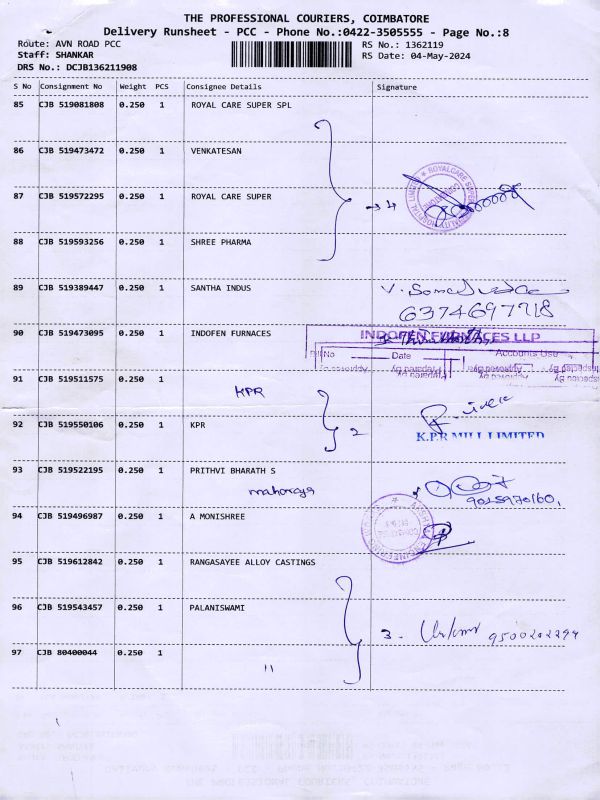 THE PROFESSIONAL COURIERS, COIMBATORE
Delivery Runsheet - PCC - Phone No.:0422-3505555 - Page No.:8
Route: AVN ROAD PCC
RS No.: 1362119
Staff: SHANKAR
RS Date: 04-May-2024
DRS No.: DCJB136211908
S No Consignment No Weight PCS Consignee Details Signature
85 CJB 519081808 0.250 1 ROYAL CARE SUPER SPL
86 CJB 519473472 0.250 1 VENKATESAN
87 CJB 519572295 0.250 1 ROYAL CARE SUPER
→ 4
88 CJB 519593256 0.250 1 SHREE PHARMA
89 CJB 519389447 0.250 1 SANTHA INDUS
6374697718
90 CJB 519473095 0.250 1 INDOFEN FURNACES
INDOFEN FURNACES LLP
Bill No Date Accounts Use
91 CJB 519511575 0.250 1
KPR
92 CJB 519550106 0.250 1 KPR
2
K.P.R MILL LIMITED
93 CJB 519522195 0.250 1 PRITHVI BHARATH S
9015970160
94 CJB 519496987 0.250 1 A MONISHREE
95 CJB 519612842 0.250 1 RANGASAYEE ALLOY CASTINGS
96 CJB 519543457 0.250 1 PALANISWAMI
3 - 9500202294
97 CJB 80400044 0.250 1
"